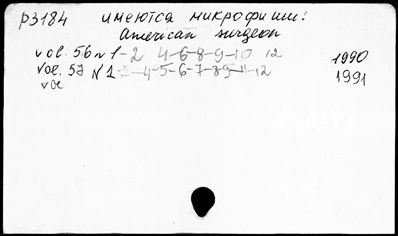 р3184 имеются микрофиши!
American surgeon
vol. 56 N 1-2 4-6-8-9-10 12 1990
Vol. 57 N 1-2-4-5-6-7-8-9-11-12 1991
vol